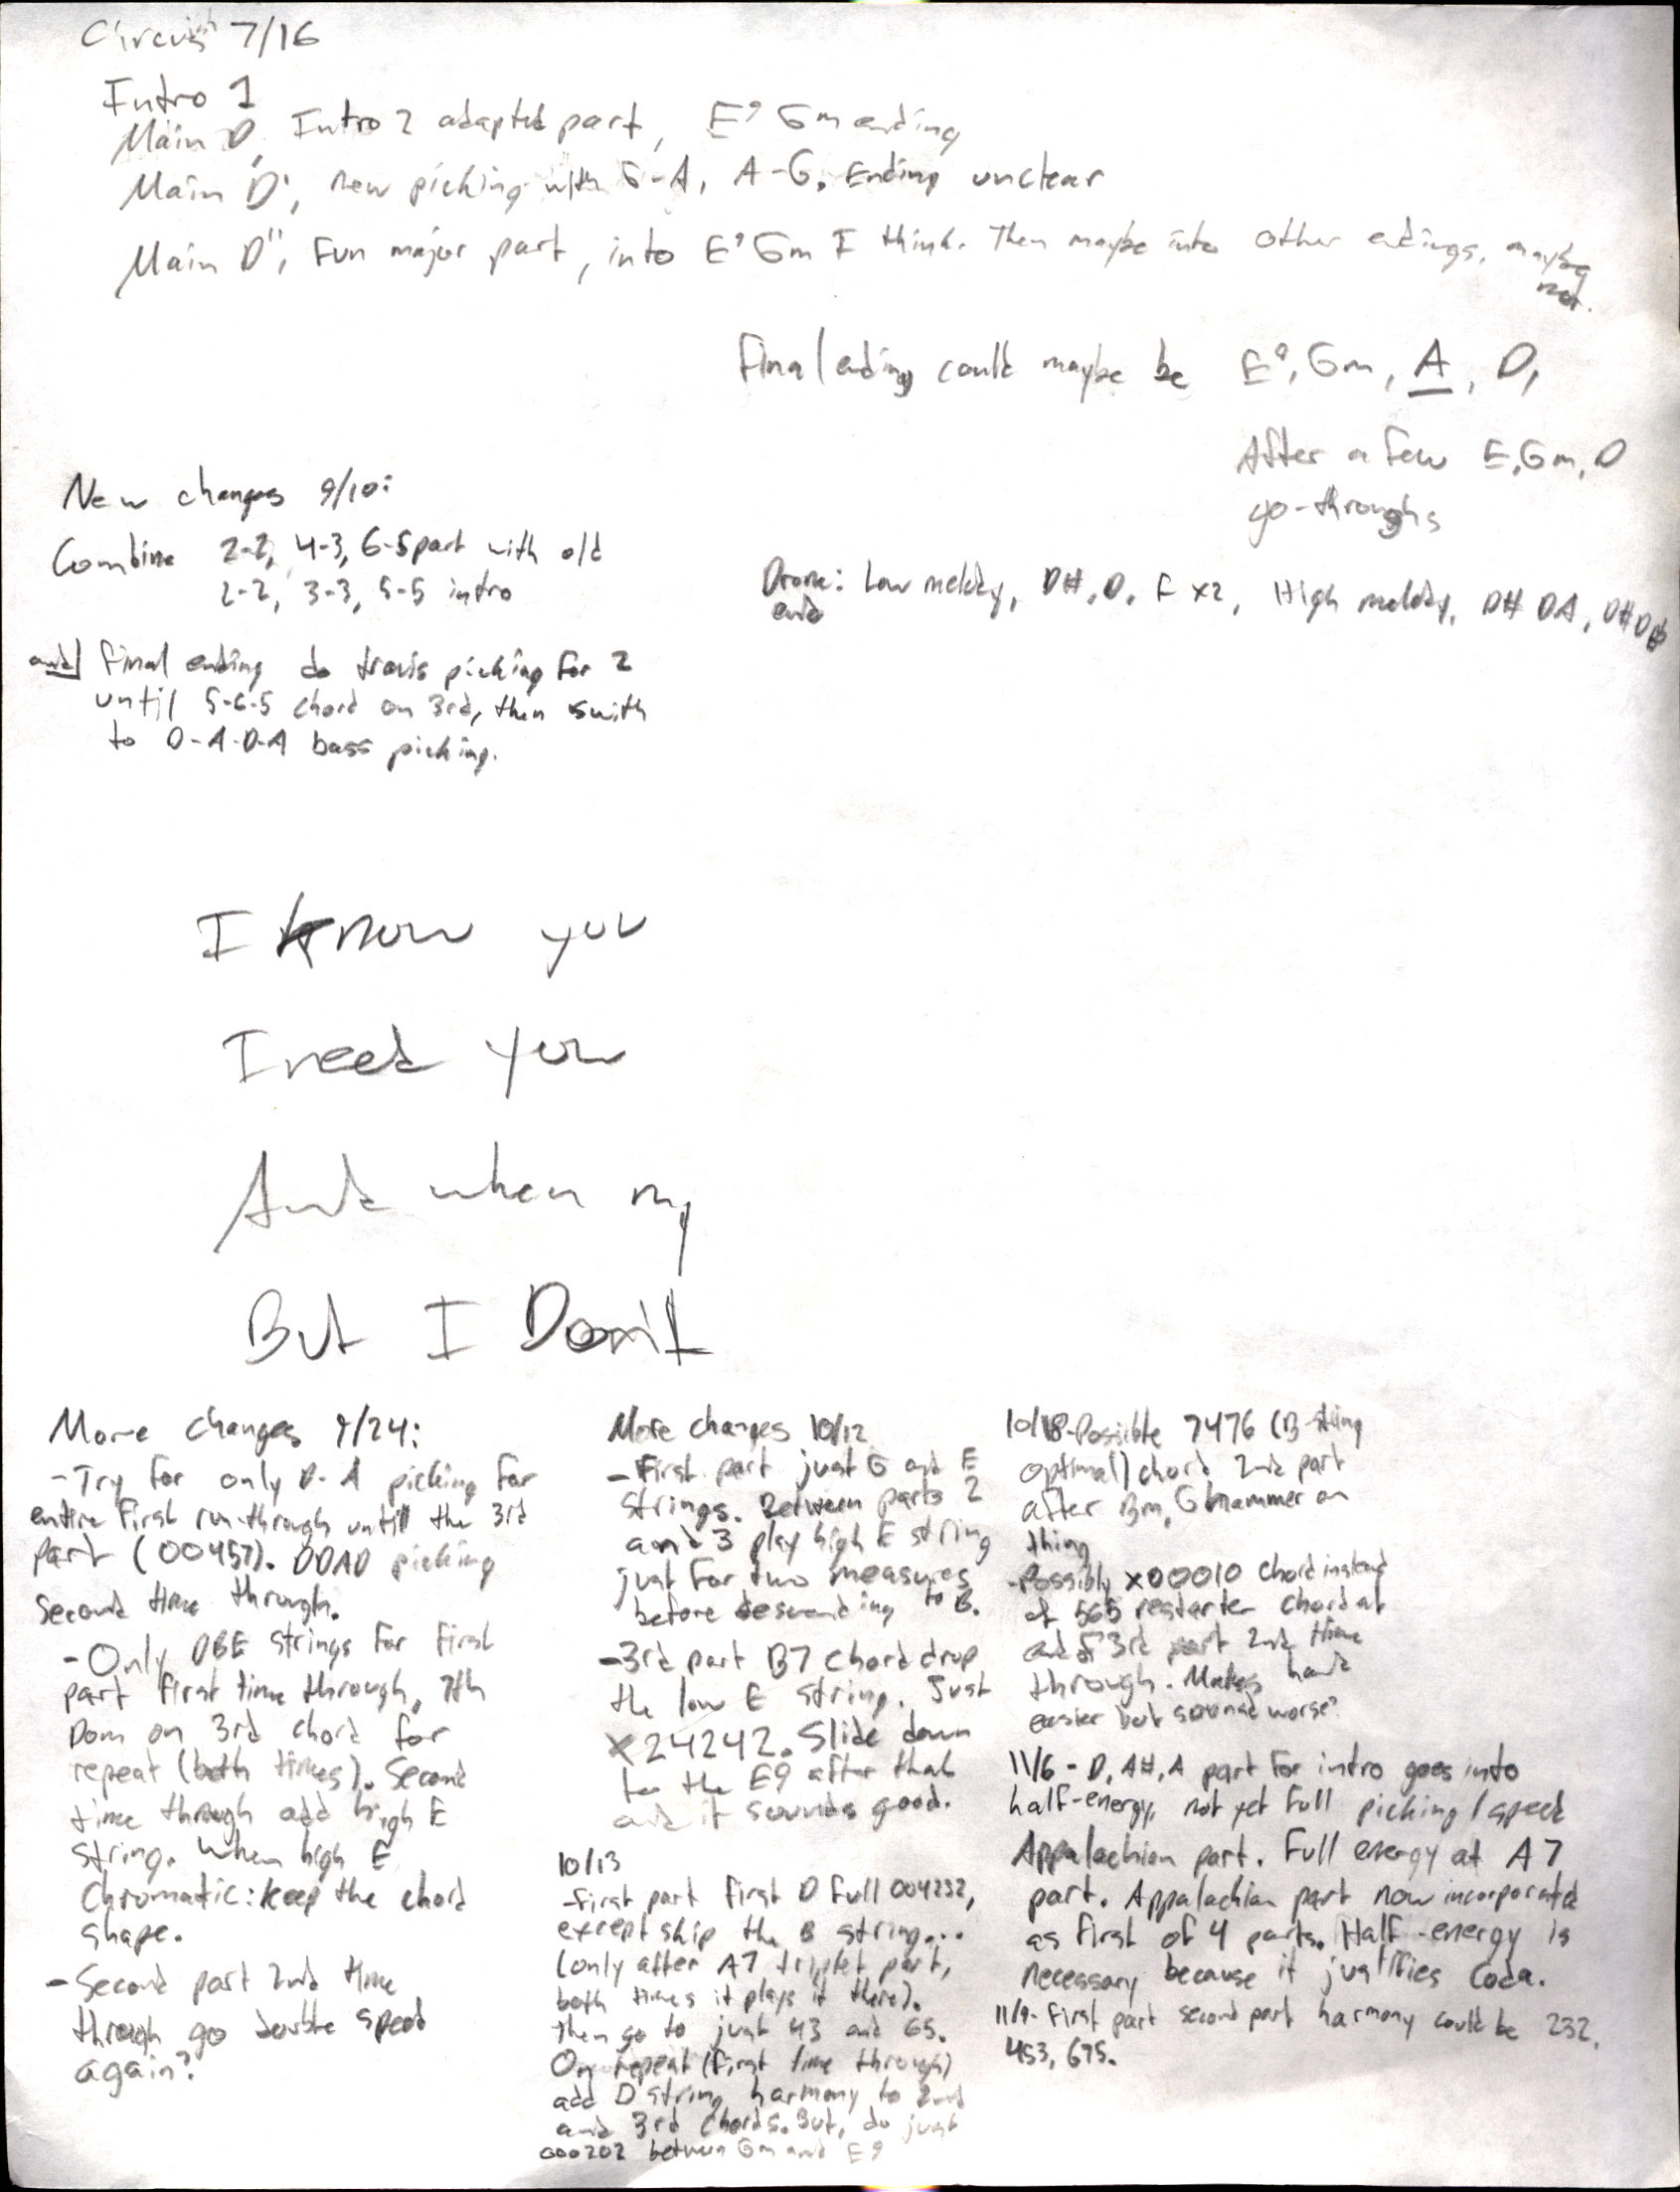 Circus 7/16
Intro 1
Main D, Intro 2 adapted part, E9 Gm ending
Main D', new picking with G-A, A-G. Ending unclear
Main D'', Fun major part, into E9 Gm I think. Then maybe into other edings, maybe
not.
Final ending could maybe be E9, Gm, A, D,
After a few E, Gm, D
go-throughs
New changes 9/10:
Combine 2-2, 4-3, 6-5 part with old
2-2, 3-3, 5-5 intro
and final ending do travis picking for 2
until 5-6-5 chord on 3rd, then swith
to D-A-D-A bass picking.
Drone: Low melody, D#, D, F x2, High melody, D# DA, D# D
end
I know you
I need you
And when my
But I Don't
More changes 9/24:
-Try for only D-A picking for
entire first run-through until the 3rd
part (00457). DDAD picking
second time through.
-Only DBE strings for first
part first time through, 7th
Dom on 3rd chord for
repeat (both times). Second
time through add high E
string. When high E
chromatic: keep the chord
shape.
-Second part 2nd time
through go double speed
again?
More changes 10/12
-First part just G and E
strings. Between parts 2
and 3 play high E string
just for two measures
before descending to B.
-3rd part B7 chord drop
the low E string. Just
X24242. Slide down
to the E9 after that
and it sounds good.
10/13
-first part first D full 004232,
except skip the B string...
(only after A7 triplet part,
both times it plays it there).
Then go to just 43 and 65.
On repeat (first time through)
add D string harmony to 2nd
and 3rd chords. But, do just
000202 between Gm and E9
10/18-Possible 7476 (B-string
optimal) chord 2nd part
after Bm, G hammer on
thing
-Possibly x00010 chord instead
of 565 restarter chord at
end of 3rd part 2nd time
through. Makes hand
easier but sounds worse?
11/6 - D, A#, A part for intro goes into
half-energy, not yet full picking/speed
Appalachian part. Full energy at A7
part. Appalachian part now incorporated
as first of 4 parts. Half-energy is
necessary because it justifies coda.
11/9- First part second part harmony could be 232,
453, 675.